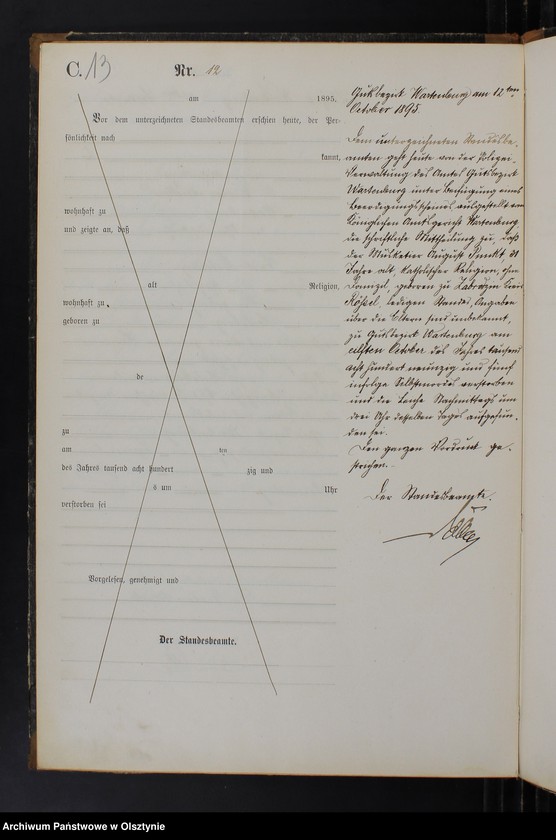 C. 13
Nr. 12
am 1895.
Vor dem unterzeichneten Standesbeamten erschien heute, der Per-
sönlichkeit nach
kannt,
wohnhaft zu
und zeigte an, daß
alt Religion,
wohnhaft zu
geboren zu
de
zu
am ten
des Jahres tausend acht hundert zig und
s um Uhr
verstorben sei
Vorgelesen, genehmigt und
Der Standesbeamte.
Gutsbezirk Wartenburg am 12ten
October 1895.
Dem unterzeichneten Standesbe-
amten geht heute von der Polizei-
Verwaltung des Amtes Gutsbezirk
Wartenburg unter Beifügung eines
Beerdigungsscheines ausgestellt vom
Königlichen Amtsgericht Wartenburg
die schriftliche Mittheilung zu, daß
der Musketier August 21
Jahre alt, katholischer Religion, ohne
Domizil, geboren zu Kreis
Rößel, ledigen Standes, Angaben
über die Eltern sind unbekannt,
zu Gutsbezirk Wartenburg am
elften October des Jahres tausend
acht hundert neunzig und fünf
infolge Selbstmordes verstorben
und die Leiche Nachmittags um
drei Uhr desselben Tages aufgefun-
den sei.
Den ganzen Vordruck ge-
strichen.
Der Standesbeamte.
Archiwum Państwowe w Olsztynie